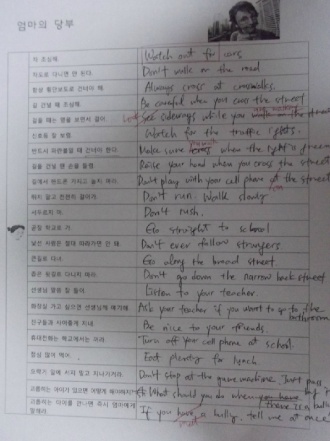 엄마의 당부
차 조심해.
Watch out for cars
차도로 다니면 안 된다.
Don't walk on the road
항상 횡단보도로 건너야 해.
Always cross at crosswalks.
길 건널 때 조심해.
Be careful when you cross the street
See sideways while you the street
신호등 잘 보렴.
Watch for the traffic lights.
반드시 파란불일 때 건너야 한다.
Make sure when the light is green
길을 건널 땐 손을 들렴.
Raise your hand when you cross the street
Don't play with your cell phone the street
뛰지 말고 천천히 걸어가.
Don't run. Walk slowly
서두르지 마.
Don't rush.
곧장 학교로 가.
Go straight to school
낯선 사람은 절대 따라가면 안 돼.
Don't ever follow strangers
큰길로 다녀.
Go along the broad street
좁은 뒷길로 다니지 마라.
Don't go down the narrow back street
선생님 말씀 잘 들어.
Listen to your teacher.
화장실 가고 싶으면 선생님께 얘기해.
Ask your teacher if you want to go to the bathroom
친구들과 사이좋게 지내.
Be nice to your friends.
휴대전화는 학교에서는 꺼라.
Turn off your cell phone at school.
점심 많이 먹어.
Eat plenty for lunch
오락기 앞에 서지 말고 지나가거라.
Don't stop at the game machine. Just pass by it
괴롭히는 아이가 있으면 어떻게 해야하지?
What should you do when there is a bully
괴롭히는 아이를 만나면 즉시 엄마에게 말해라
If you meet a bully, tell me at once